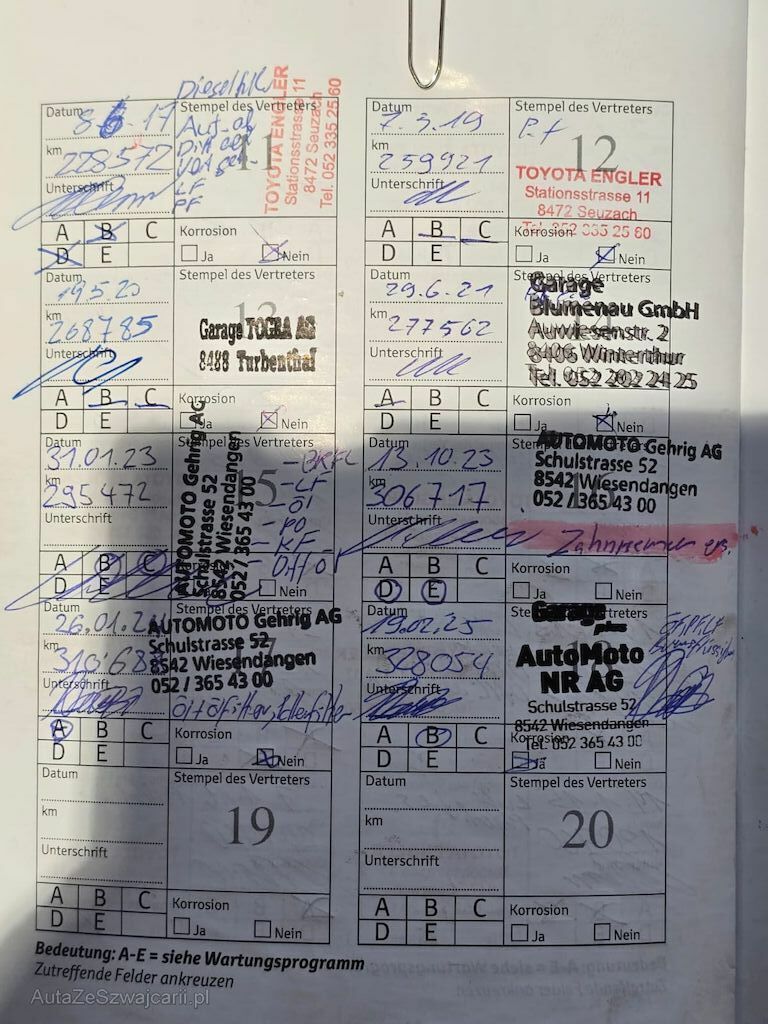 Datum 8 6 17
km 228572
Unterschrift
Stempel des Vertreters
11
LF
PF
TOYOTA ENGLER
Stationsstrasse 11
8472 Seuzach
Tel. 052 335 25 60
A B C
D E
Korrosion
Ja Nein
Datum 7.3.19
km 259921
Unterschrift
Stempel des Vertreters
12
TOYOTA ENGLER
Stationsstrasse 11
8472 Seuzach
Tel. 052 335 25 60
A B C
D E
Korrosion
Ja Nein
Datum 19.5.20
km 268785
Unterschrift
Stempel des Vertreters
13
Garage TOGRA AG
8488 Turbenthal
A B C
D E
Korrosion
Ja Nein
Datum 29.6.21
km 277562
Unterschrift
Garage
Blumenau GmbH
Auwiesenstr. 2
8406 Winterthur
Tel. 052 202 24 25
A B C
D E
Korrosion
Ja Nein
Datum 31.01.23
km 295472
Unterschrift
Stempel des Vertreters
15
AUTOMOTO Gehrig AG
Schulstrasse 52
8542 Wiesendangen
052 / 365 43 00
- LF
- Öl
- KF
A B C
D E
Nein
Datum 13.10.23
km 306717
Unterschrift
AUTOMOTO Gehrig AG
Schulstrasse 52
8542 Wiesendangen
052 / 365 43 00
Zahnriemen ers.
A B C
D E
Korrosion
Ja Nein
Datum 26.01.2
km
Unterschrift
Stempel des Vertreters
17
AUTOMOTO Gehrig AG
Schulstrasse 52
8542 Wiesendangen
052 / 365 43 00
A B C
D E
Korrosion
Ja Nein
Datum 19.02.25
km 328054
Unterschrift
Garage
plus
AutoMoto
NR AG
Schulstrasse 52
8542 Wiesendangen
Tel. 052 365 43 00
A B C
D E
Korrosion
Ja Nein
Datum
km
Unterschrift
Stempel des Vertreters
19
A B C
D E
Korrosion
Ja Nein
Datum
km
Unterschrift
Stempel des Vertreters
20
A B C
D E
Korrosion
Ja Nein
Bedeutung: A-E = siehe Wartungsprogramm
Zutreffende Felder ankreuzen
AutaZeSzwajcarii.pl